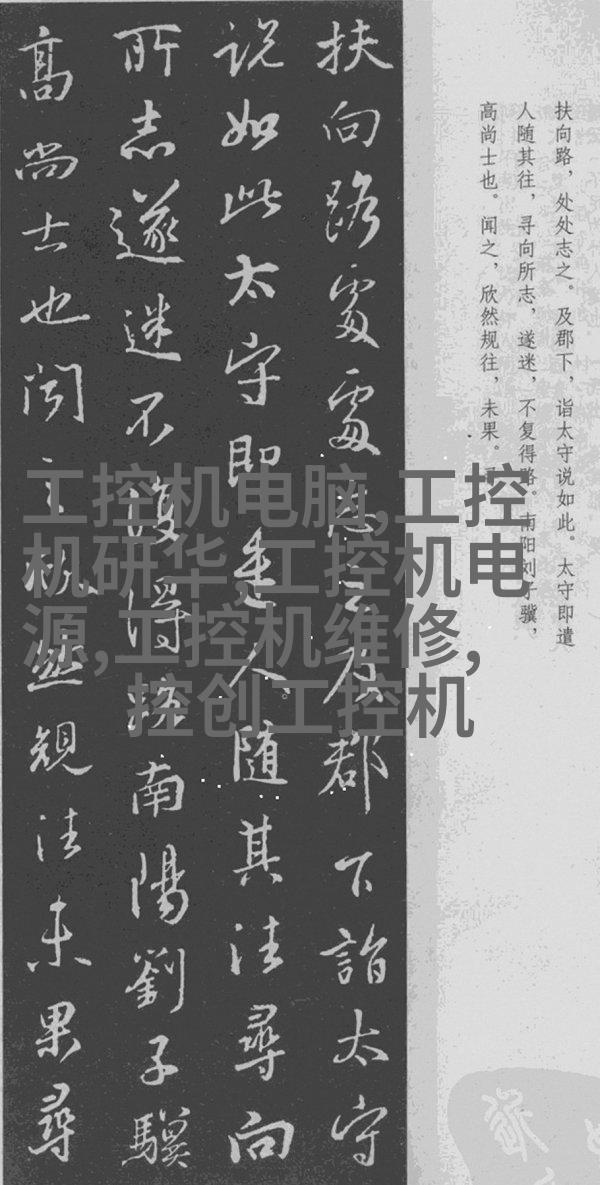 扶向路，处处志之。及郡下，诣太守说如此。太守即遣
人随其往，寻向所志，遂迷，不复得路。南阳刘子骥，
高尚士也。闻之，欣然规往，未果。寻
扶向路處處志之及郡下詣太守
説如此太守即遣人隨其往尋向
所志遂迷不復得路南陽劉子驥
高尚士也聞之欣然規往未果尋
工控机电脑,工控
机研华,工控机电
源,工控机维修,
控创工控机